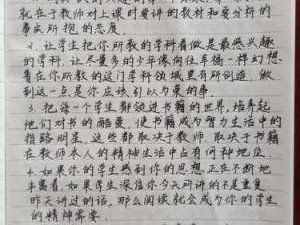 就在于教师对上课时要讲的教材和要分析的
事实所抱的态度。
2. 让学生把你所教的学科看做是最感兴趣
的学科, 让尽量多的少年像向往幸福一样幻想
着在你所教的这门学科领域里有所创造, 做
到这一点是你应该引以为荣的事。
3. 把每一个学生都领进书籍的世界, 培养起
他们对书的酷爱, 使书籍成为智力生活中的
指路明星, 这些都取决于教师, 取决于书籍
在教师本人的精神生活中占有何种地位。
4. 如果你的学生感到你的思想正在不断地
丰富着, 如果学生深信你今天所讲的不是重复
昨天讲过的话, 那么阅读就会成为你的学生
的精神需要。